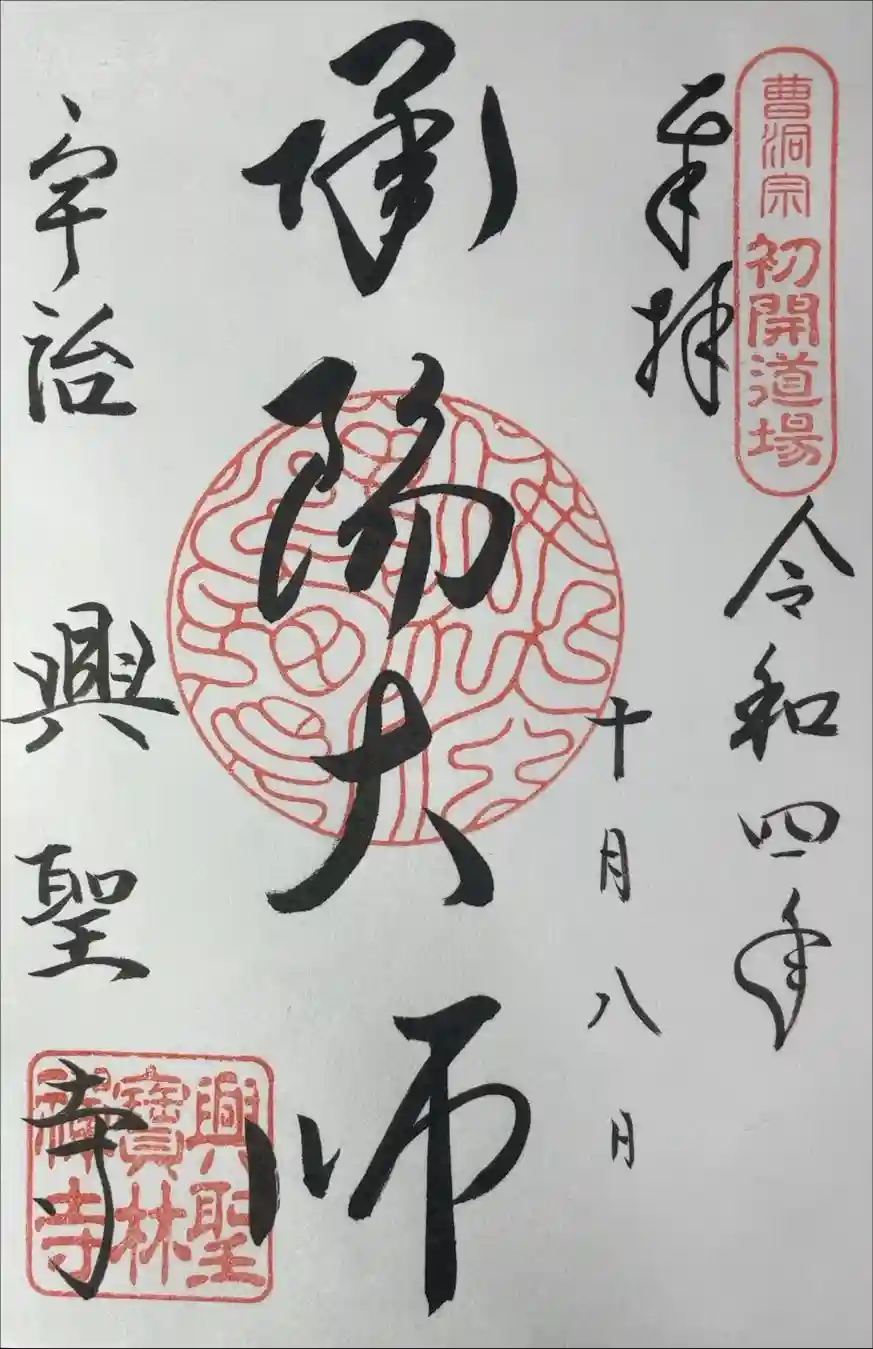 曹洞宗 初開道場
奉拝
令和四年
十月八日
承陽大師
宇治 興聖寺
興聖
寶林
禅寺